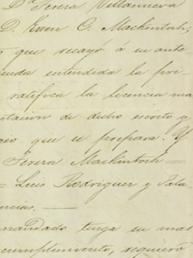 Dª Teresa Villanueva
D. Ewen C. Mackintosh,
que recayó á su ante
entendida la pre
ratifica la licencia ma
de dicho escrito y
que se prepara.
Teresa Mackintosh
= Luis Rodriguez y Pala
cios. —
mandado tenga su mas
cumplimiento, requiero